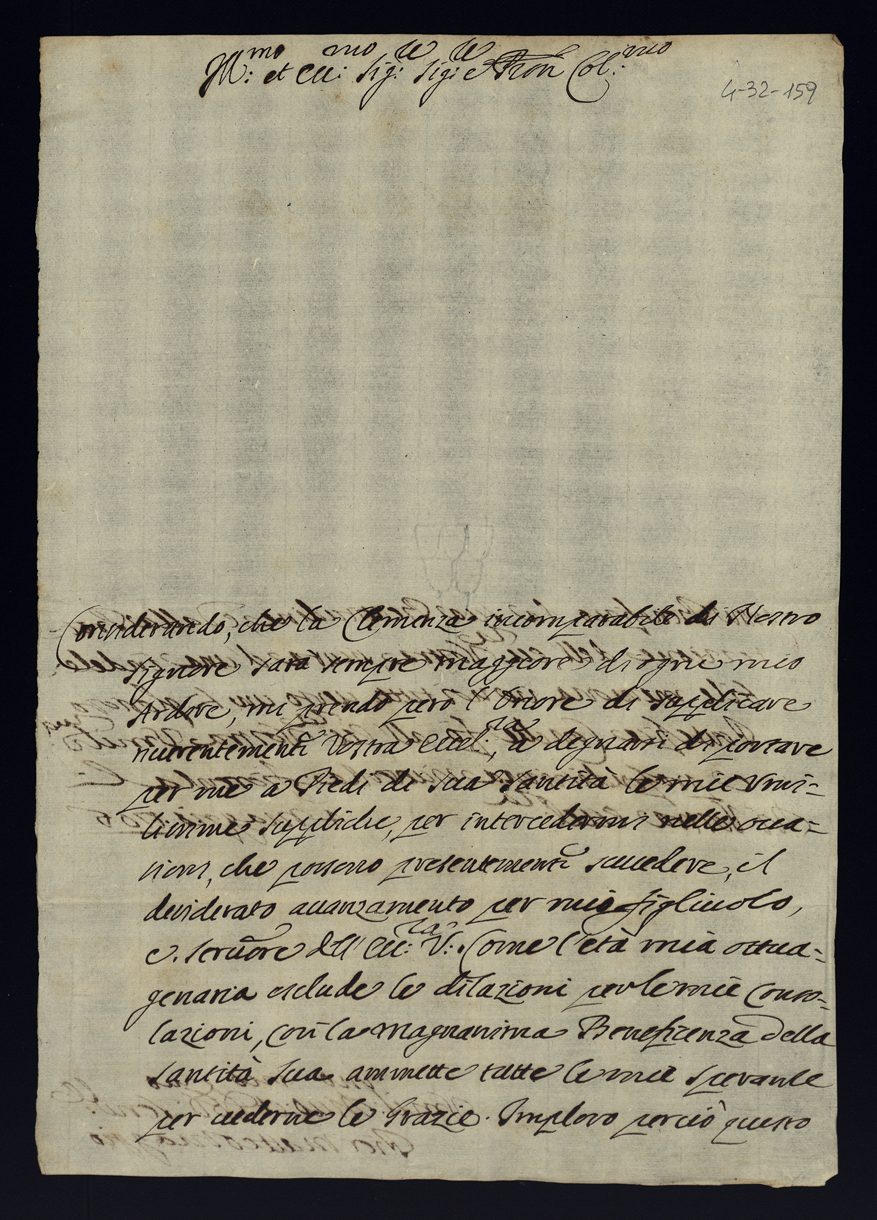 Ill:mo et Ecc:mo Sig:re Sig:re e Pron Col:mo
4-32-159
Considerando, che la Clemenza incomparabile di Nostro
Signore sarà sempre maggiore di ogni mio
Ardire, mi prendo però l'Onore di supplicare
riverentemente Vostra Eccel:za, à degnarsi di portare
per me a Piedi di Sua Santità le mie Umi-
lissime suppliche, per intercedermi nelle occa-
sioni, che possono presentemente succedere, il
desiderato avanzamento per mio figliuolo,
e servitore dell'Ecc:za V:. Come l'età mia ottua-
genaria esclude le dilazioni per le mie Conso-
lazioni, così la magnanima Beneficenza della
Santità Sua ammette tutte le mie speranze
per vederne le Grazie. Imploro perciò questo